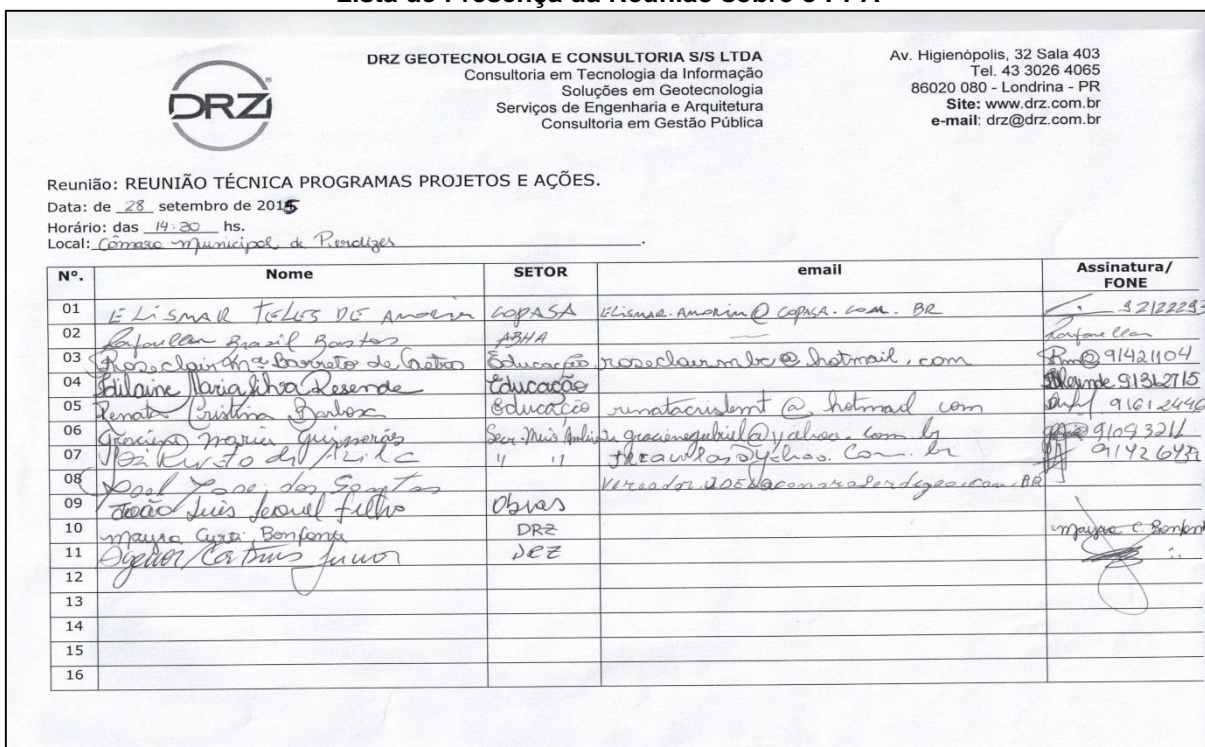 Lista de Presença da Reunião sobre o PPA
DRZ
DRZ GEOTECNOLOGIA E CONSULTORIA S/S LTDA
Consultoria em Tecnologia da Informação
Soluções em Geotecnologia
Serviços de Engenharia e Arquitetura
Consultoria em Gestão Pública
Av. Higienópolis, 32 Sala 403
Tel. 43 3026 4065
86020 080 - Londrina - PR
Site: www.drz.com.br
e-mail: drz@drz.com.br
Reunião: REUNIÃO TÉCNICA PROGRAMAS PROJETOS E AÇÕES.
Data: de 28 setembro de 2015
Horário: das 14:30 hs.
Local: Câmara Municipal de Perdizes.
Nº. Nome SETOR email Assinatura/
FONE
01 ELISMAR TELES DE AMORIM COPASA ELISMAR.AMORIM@COPASA.COM.BR
02 Rafaella Brasil Bastos ABHA — Rafaella
03 Roseclair Mª Barreto de Castro Educação roseclairmbc@hotmail.com 91421104
04 Edilaine Maria Silva Resende Educação 91312715
05 Renata Cristina Barbosa Educação renatacrisbmt@hotmail com 91612446
06 Graciene Maria Guimarães Secr. Meio Ambiente gracienegabriel@yahoo.com.br
07 " "
08 Joel Jose dos Santos
09 João Luis Leonel Filho Obras
10 Mayra Curti Bonfante DRZ Mayra C. Bonfante
11 Junior DRZ
12
13
14
15
16